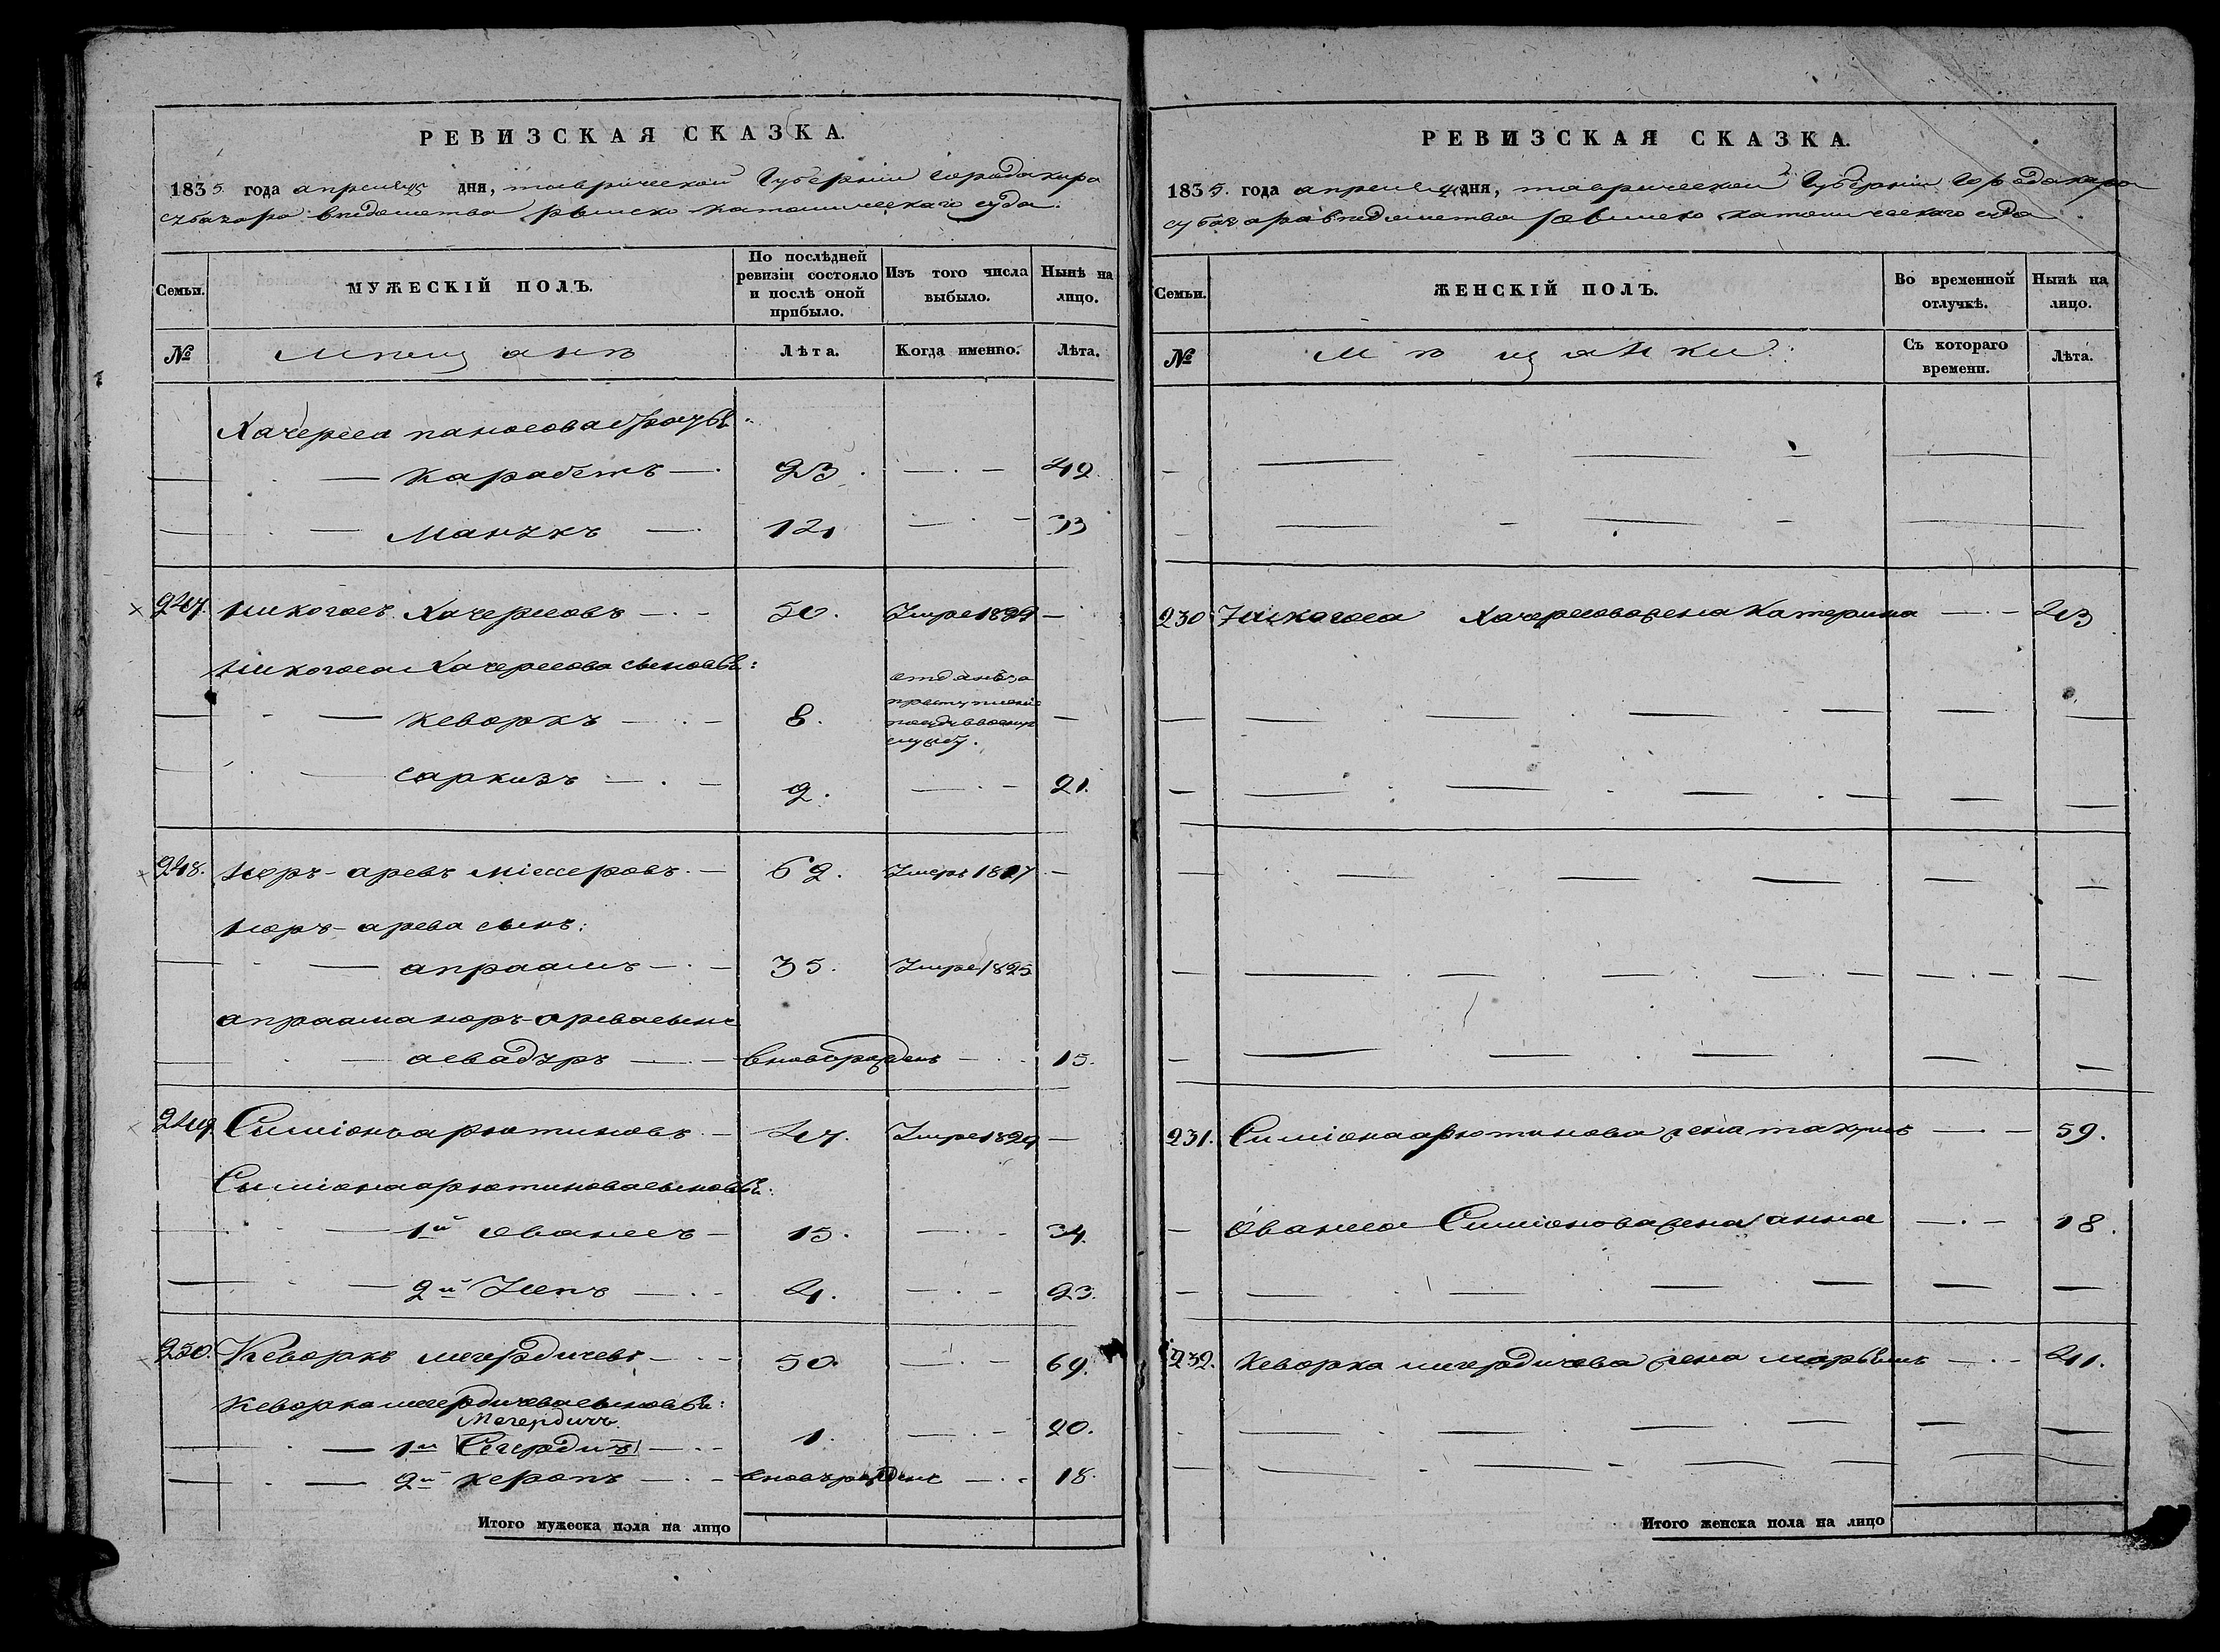 РЕВИЗСКАЯ СКАЗКА.
1835 года апреля 25 дня, таврической Губерніи города кара
субазара ведомства римско католическаго суда.
Семьи.
МУЖЕСКІЙ ПОЛЪ.
По послѣдней ревизіи состояло и послѣ оной прибыло.
Изъ того числа выбыло.
Нынѣ на лицо.
№
Мѣщанѣ
Лѣта.
Когда именно.
Лѣта.
Хачереса паносова братья
— Карабетъ — 23. — 42
— Манукъ — 12 — 33
247. Никогосъ Хачересовъ — 50. Умре 1824 —
Никогоса Хачересова сыновья:
— Кеворкъ — 8. отданъ за —
— Саркизъ — 2. — 21.
248. Нюръ-аревъ Місеровъ. — 62. Умеръ 1827 —
Нюръ-арева сынъ:
— апраамъ — 35. Умре 1825
апраама нюръ-арева сынъ
— асвадуръ — вновь рожденъ — 15.
249. Симіонъ арютиновъ — 47. Умре 1824 —
Симіона арютинова сыновья:
— 1й Ованесъ — 15. — 34.
— 2й — 4. — 23.
250. Кеворкъ мегердичевъ — 50. — 69.
Кеворка мегердичева сыновья:
Мегердичъ
— 1й — 1. — 20.
— 2й керопъ — вновь рожденъ — 18.
Итого мужеска пола на лицо
РЕВИЗСКАЯ СКАЗКА.
1835. года апреля дня, таврической Губерніи Города кара
субазара ведомства римско католическаго суда
Семьи.
ЖЕНСКІЙ ПОЛЪ.
Во временной отлучкѣ.
Нынѣ на лицо.
№
Мѣщанки.
Съ котораго времени.
Лѣта.
230 Никогоса Хачересова жена Катерина — 43
231. Симіона арютинова жена такуи — 59.
Ованеса Симіонова жена анна — 18.
232. Кеворка мегердичева жена марьямъ — 41.
Итого женска пола на лицо